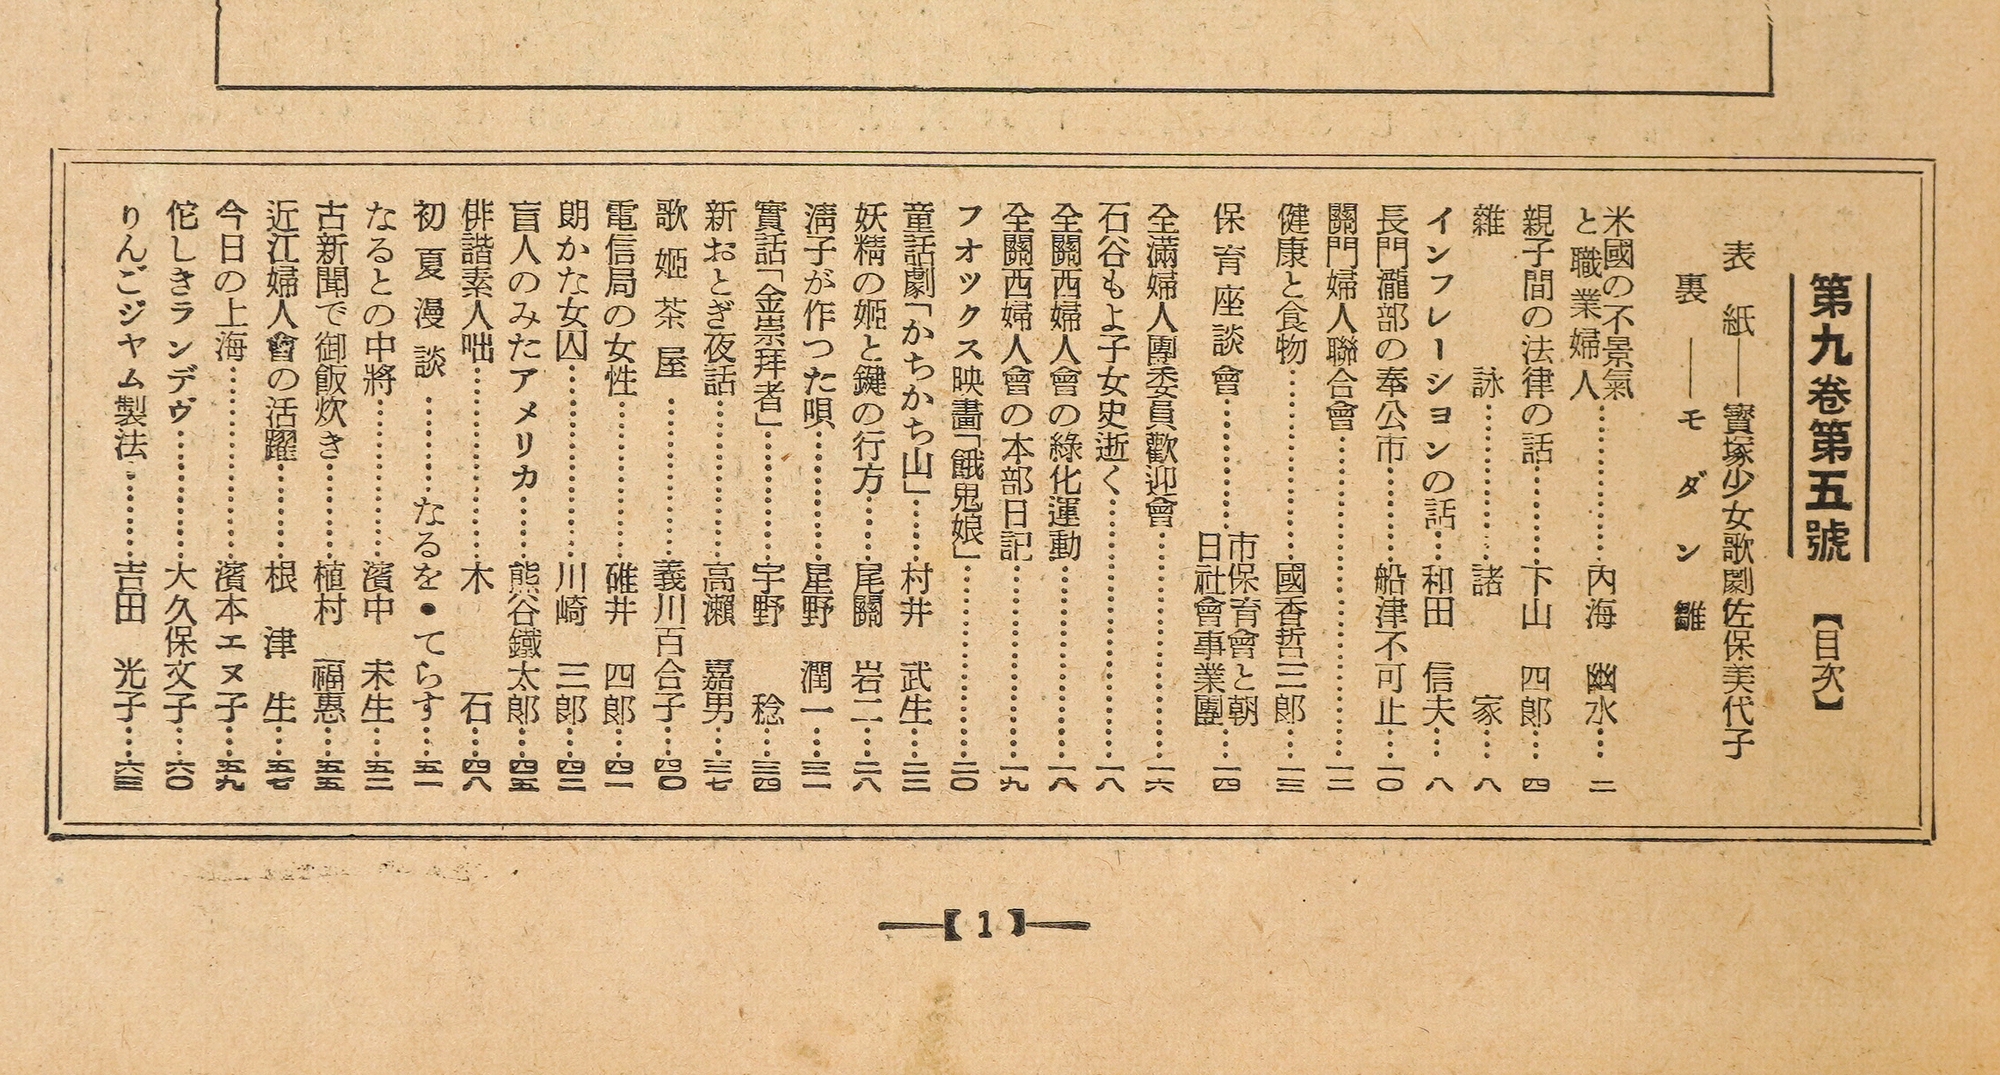 第九卷第五號　【目次】
表紙――寳塚少女歌劇佐保美代子
裏――モダン雛
米國の不景氣
と職業婦人…………内海　幽水…二
親子間の法律の話……下山　四郎…四
雜　詠……諸　家…八
インフレーションの話…和田　信夫…八
長門瀧部の奉公市……船津不可止…一〇
關門婦人聯合會……………一二
健康と食物…………國香哲三郎…一三
保育座談會………市保育會と朝
日社會事業團…一四
全滿婦人團委員歡迎會…………一六
石谷もよ子女史逝く…………一八
全關西婦人會の綠化運動………一八
全關西婦人會の本部日記………一九
フオツクス映畫「餓鬼娘」………二〇
童話劇「かちかち山」…村井　武生…二三
妖精の姫と鍵の行方…尾關　岩二…二八
淸子が作つた唄………星野　潤一…三一
實話「金崇拜者」………宇野　稔…三四
新おとぎ夜話…………高瀨　嘉男…三七
歌姫茶屋…………義川百合子…四〇
電信局の女性…………碓井　四郎…四一
朗かな女囚…………川崎　三郎…四三
盲人のみたアメリカ…熊谷鐵太郎…四五
俳諧素人咄…………木　石…四八
初夏漫談………なるを・てらす…五一
なるとの中將…………濱中　未生…五二
古新聞で御飯炊き……植村　福惠…五五
近江婦人會の活躍……根津　生…五七
今日の上海…………濱本エヌ子…五九
佗しきランデヴ………大久保文子…六〇
りんごジャム製法……吉田　光子…六三
【1】